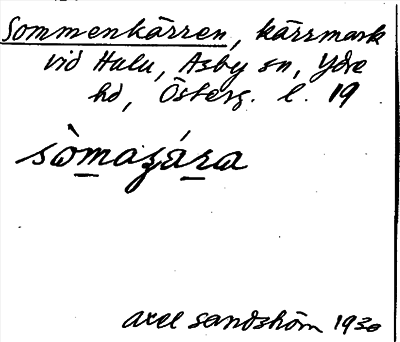 Sommenkärren, kärrmark
vid Hulu, Asby sn, Ydre
hd, Österg. l. 19
sòmaʒára
Axel Sandström 1930